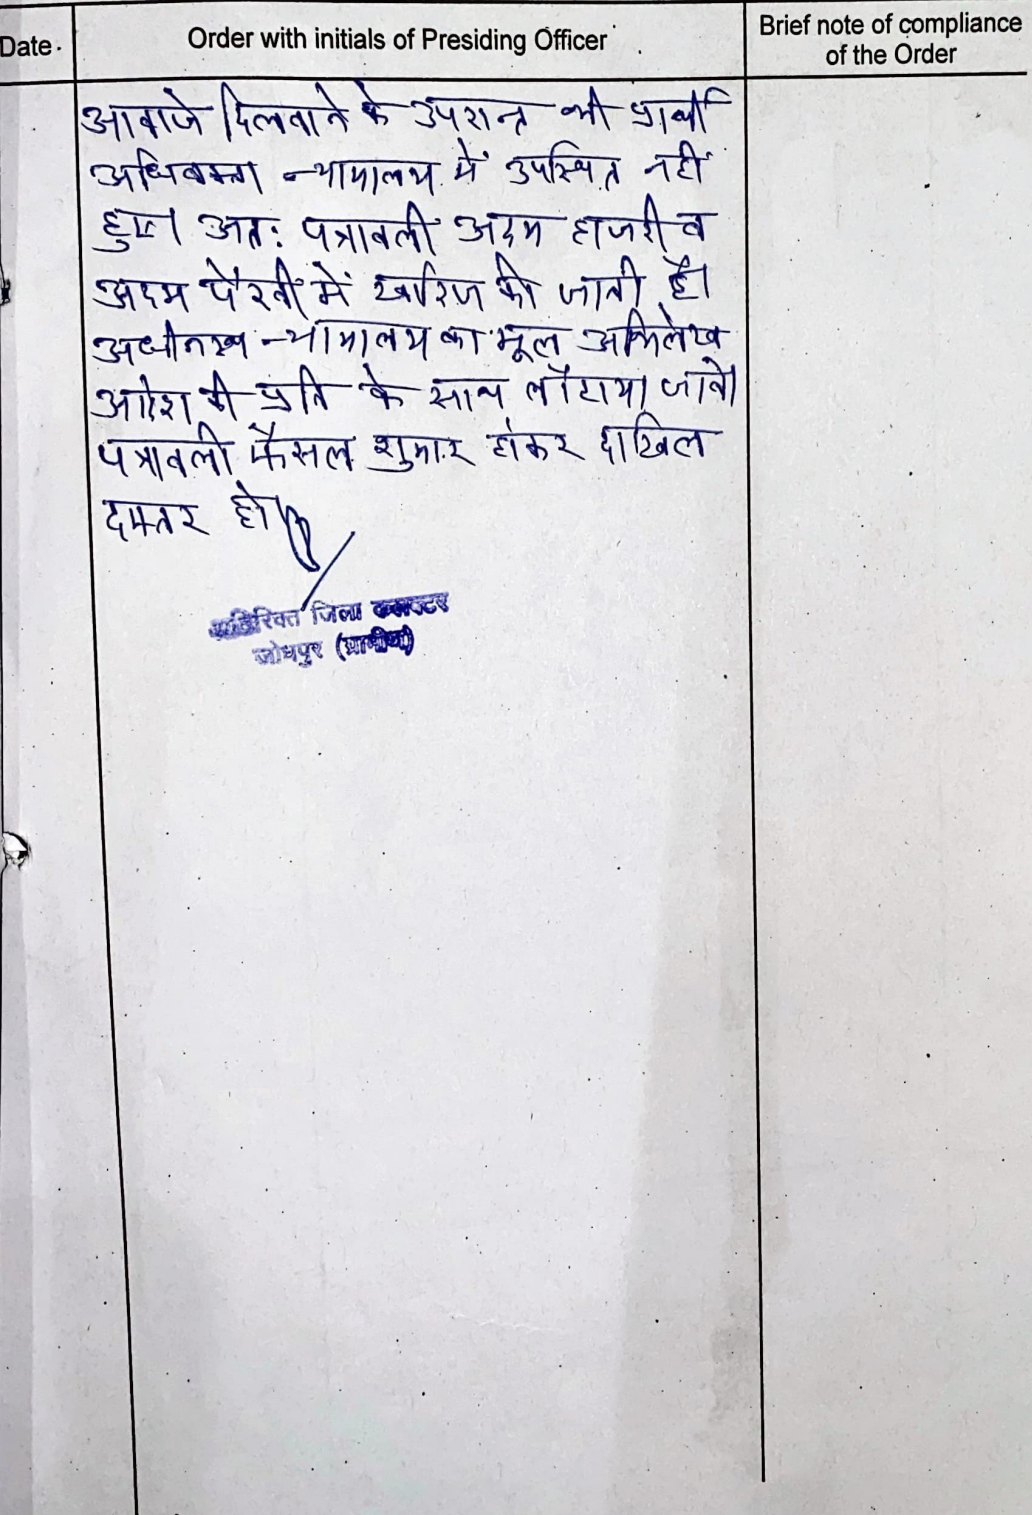 Date.
Order with initials of Presiding Officer
Brief note of compliance
of the Order
आवाजे दिलवाने के उपरान्त भी प्रार्थी
अधिवक्ता न्यायालय में उपस्थित नहीं
हुए। अतः पत्रावली अदम हाजरी व
अदम पैरवी में खारिज की जाती है।
अधीनस्थ न्यायालय का मूल अभिलेख
आदेश की प्रति के साथ लौटाया जावे।
पत्रावली फैसल शुमार होकर दाखिल
दफ्तर हो।
अतिरिक्त जिला कलक्टर
जोधपुर (ग्रामीण)